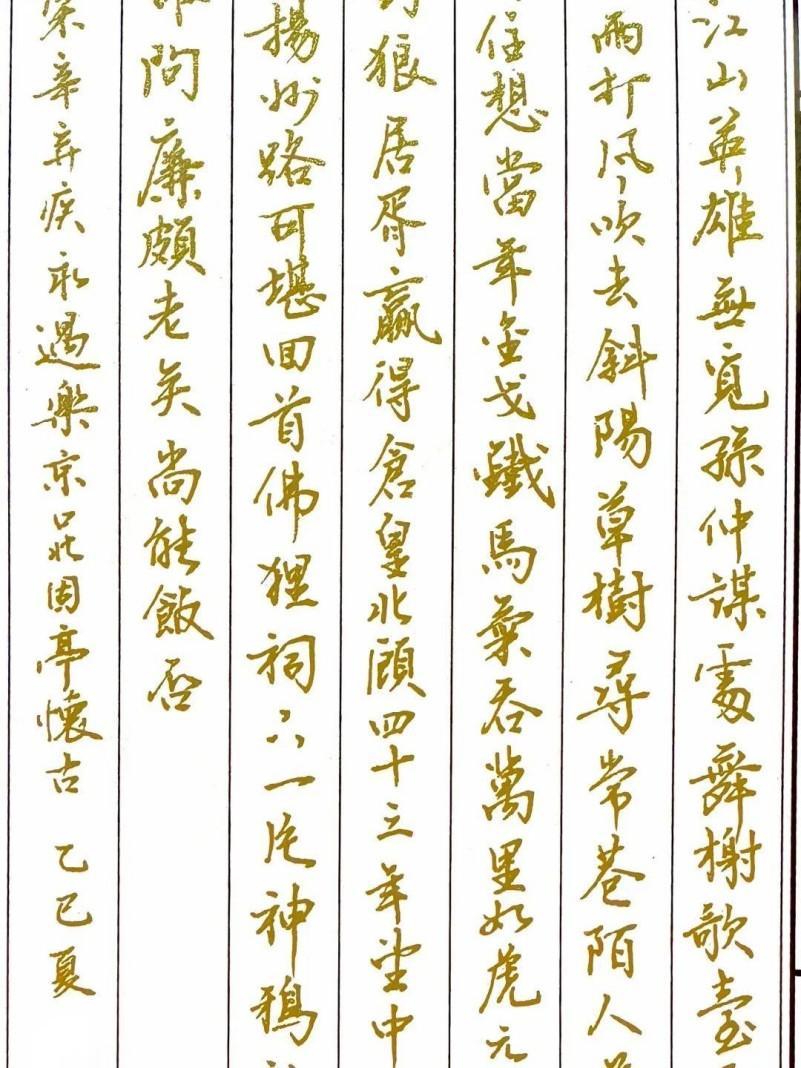 江山英雄無覓孫仲謀處舞榭歌臺
雨打風吹去斜陽草樹尋常巷陌人
住想當年金戈鐵馬氣吞萬里如虎元
狼居胥贏得倉皇北顧四十三年望中
揚州路可堪回首佛狸祠下一片神鴉
問廉頗老矣尚能飯否
宋辛弃疾永遇樂京口北固亭懷古 乙巳夏